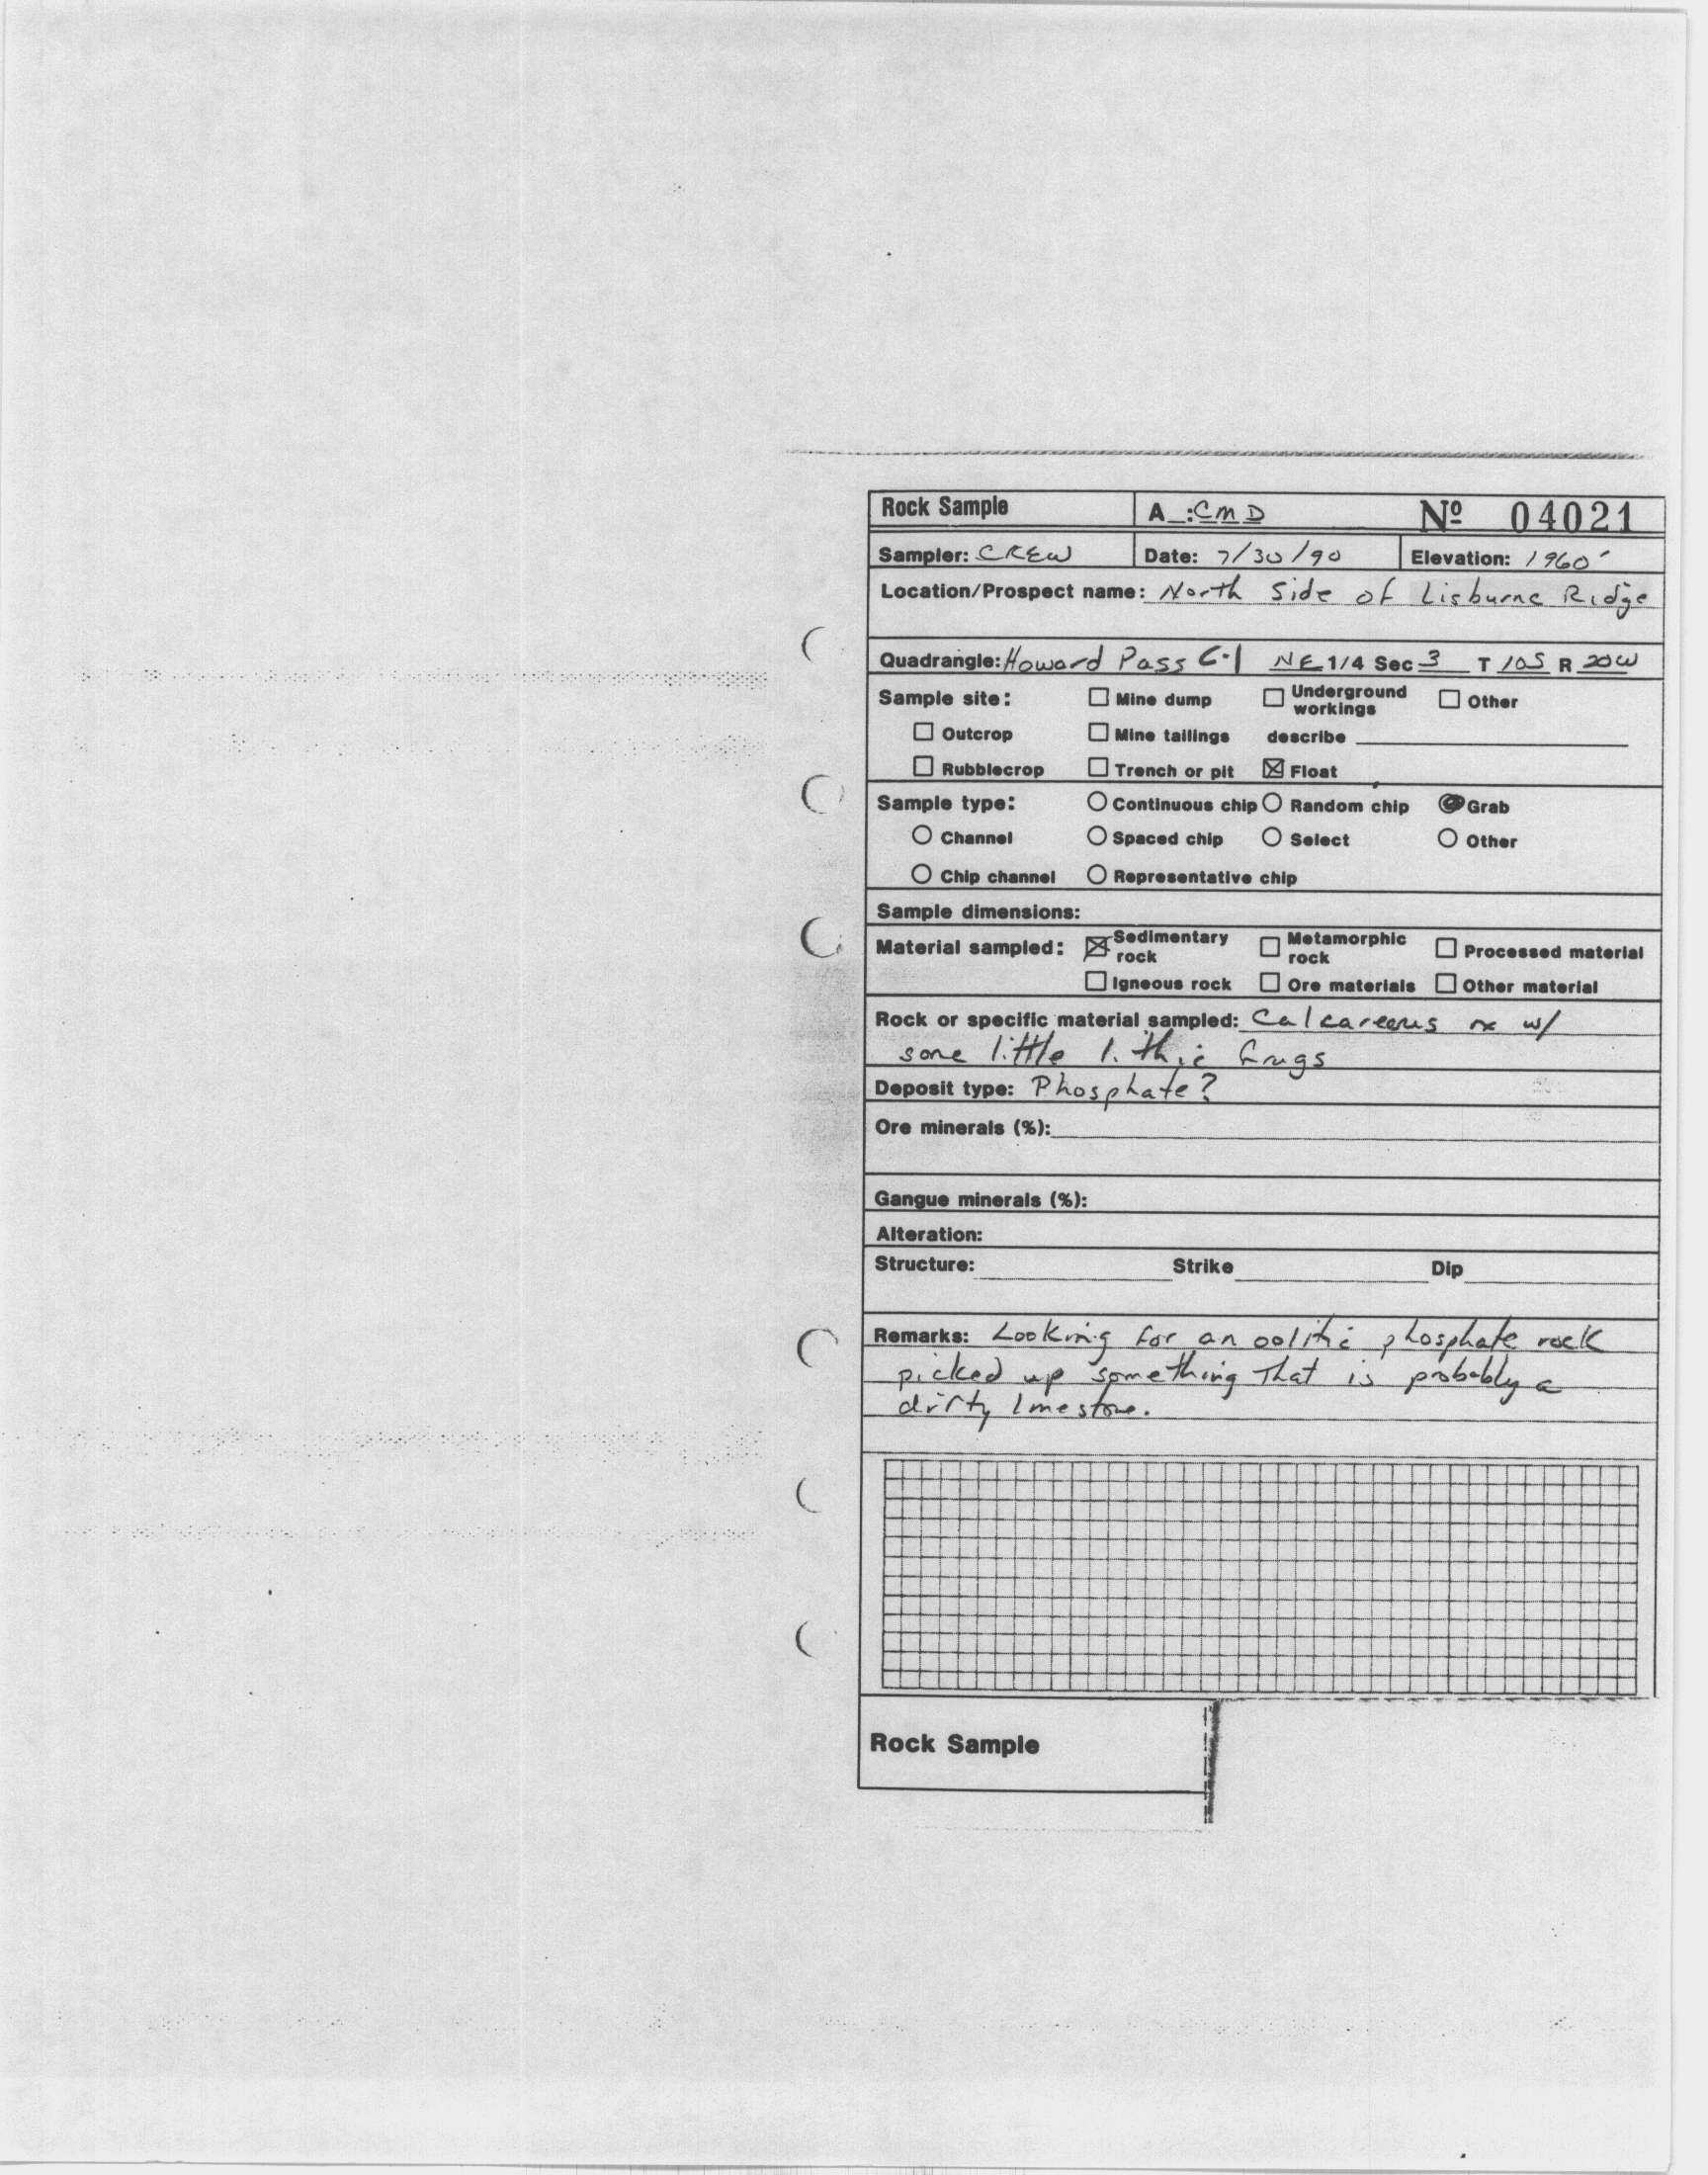 Rock Sample A_:CMD Nº 04021
Sampler: CREW Date: 7/30/90 Elevation: 1960'
Location/Prospect name: North Side of Lisburne Ridge
Quadrangle: Howard Pass C-1 NE 1/4 Sec 3 T 10S R 20W
Sample site: ☐ Mine dump ☐ Underground workings ☐ Other
☐ Outcrop ☐ Mine tailings describe
☐ Rubblecrop ☐ Trench or pit ☒ Float
Sample type: ○ Continuous chip ○ Random chip ● Grab
○ Channel ○ Spaced chip ○ Select ○ Other
○ Chip channel ○ Representative chip
Sample dimensions:
Material sampled: ☒ Sedimentary rock ☐ Metamorphic rock ☐ Processed material
☐ Igneous rock ☐ Ore materials ☐ Other material
Rock or specific material sampled: Calcareous rx w/
some little lithic frags
Deposit type: Phosphate?
Ore minerals (%):
Gangue minerals (%):
Alteration:
Structure: Strike Dip
Remarks: Looking for an oolitic phosphate rock
picked up something that is probably a
dirty limestone.
Rock Sample